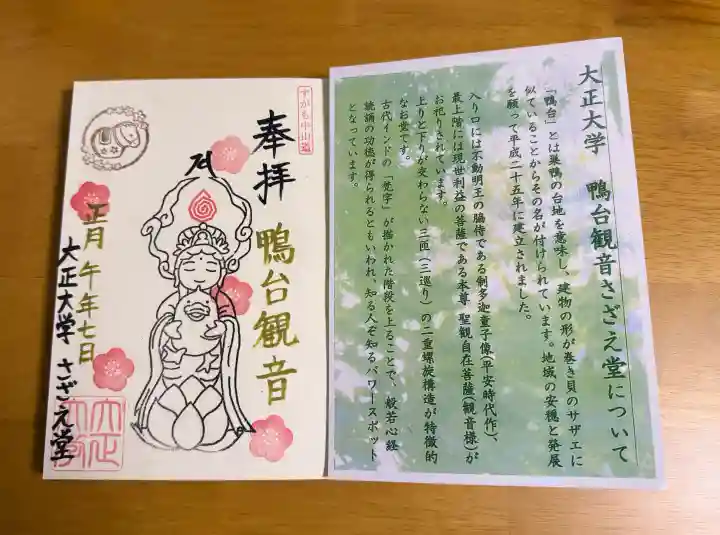 すがも中山道
奉拝
鴨台観音
正月 午年七日
大正大学 さざえ堂
大正大学 鴨台観音さざえ堂について
「鴨台」とは巣鴨の台地を意味し、建物の形が巻き貝のサザエに
似ていることからその名が付けられています。地域の安穏と発展
を願って平成二十五年に建立されました。
入り口には不動明王の脇侍である制多迦童子像(平安時代作)、
最上階には現世利益の菩薩である本尊 聖観自在菩薩(観音様)が
お祀りされています。
上りと下りが交わらない三匝(三巡り)の二重螺旋構造が特徴的
なお堂です。
古代インドの「梵字」が描かれた階段を上ることで、般若心経
読誦の功徳が得られるともいわれ、知る人ぞ知るパワースポット
となっています。